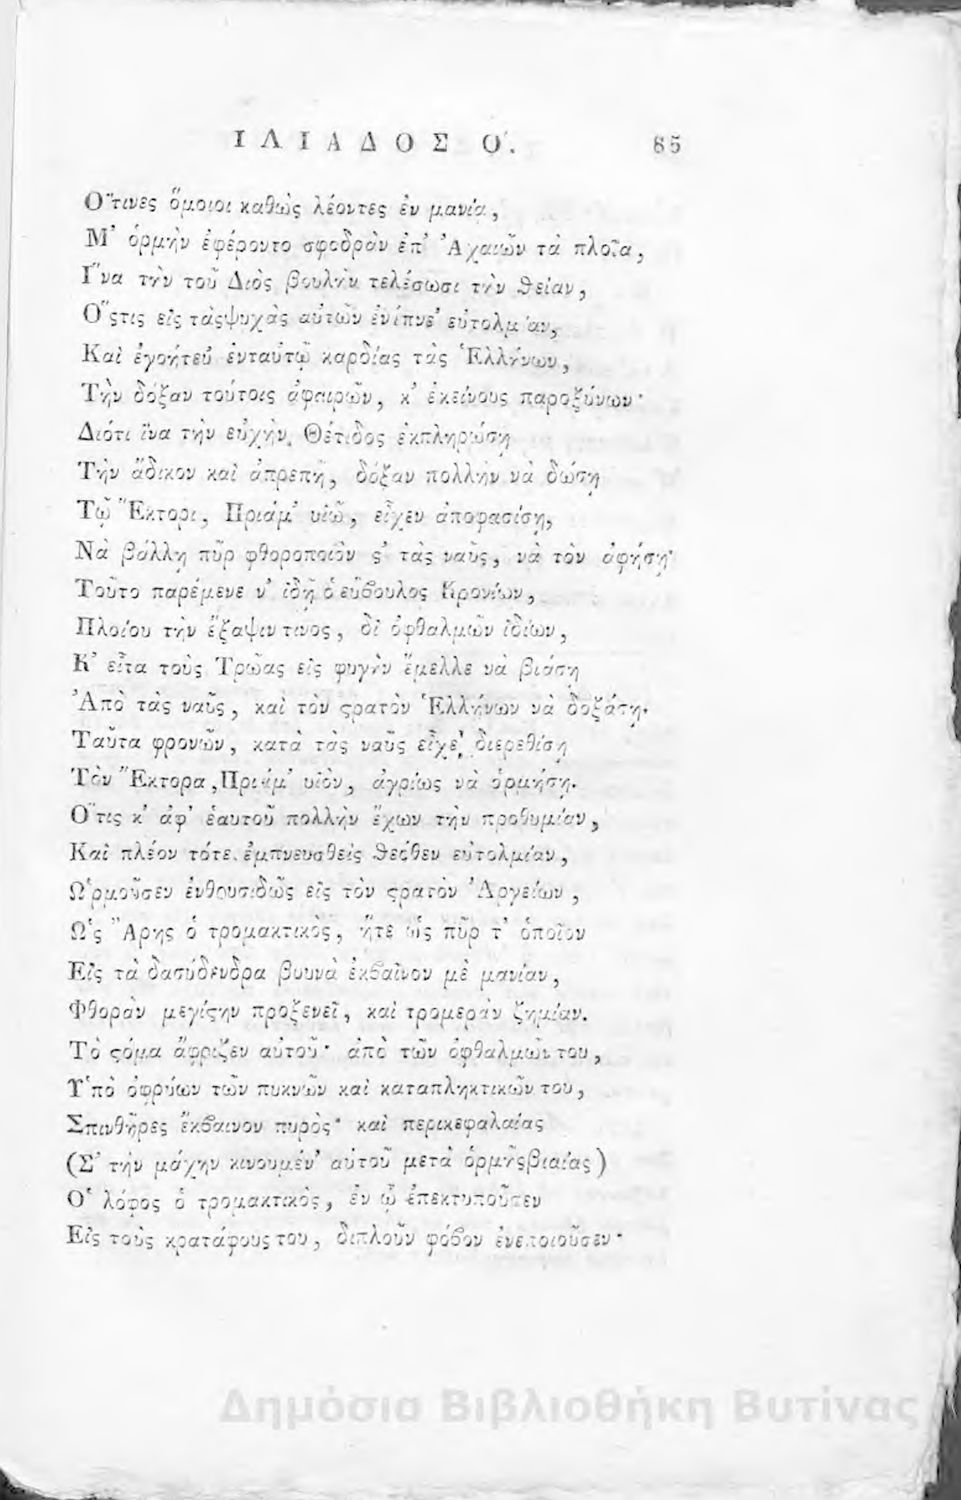 ΙΛΙΑΔΟΣ Ο'. 85
Ὅτινες ὅμοιοι καθὼς λέοντες ἐν μανίᾳ,
Μ' ὁρμὴν ἐφέροντο σφοδρὰν ἐπ' Ἀχαιῶν τὰ πλοῖα,
Ἵνα τὴν τοῦ Διὸς βουλὴν τελέσωσι τὴν θείαν,
Ὅςτις εἰς τὰςψυχὰς αὐτῶν ἐνίπνε' εὐτολμίαν,
Καὶ ἐγοήτευ ἐνταυτῷ καρδίας τὰς Ἑλλήνων,
Τὴν δόξαν τούτοις ἀφαιρῶν, κ' ἐκείνους παροξύνων·
Διότι ἵνα τὴν εὐχὴν, Θέτιδος ἐκπληρώσῃ
Τὴν ἄδικον καὶ ἀπρεπῆ, δόξαν πολλὴν νὰ δώσῃ
Τῷ Ἕκτορι, Πριάμ' υἱῷ, εἶχεν ἀποφασίσῃ,
Νὰ βάλλῃ πῦρ φθοροποιὸν ς' τὰς ναῦς, νὰ τὸν ἀφήσῃ·
Τοῦτο παρέμενε ν' ἰδῇ ὁ εὔβουλος Κρονίων,
Πλοίου τὴν ἔξαψιν τινος, δι ὀφθαλμῶν ἰδίων,
Κ' εἶτα τοὺς Τρῶας εἰς φυγὴν ἔμελλε νὰ βιάσῃ
Ἀπὸ τὰς ναῦς, καὶ τὸν ςρατὸν Ἑλλήνων νὰ δοξάσῃ.
Ταῦτα φρονῶν, κατὰ τὰς ναῦς εἶχε διερεθίσῃ
Τὸν Ἕκτορα, Πριάμ' υἱὸν, ἀγρίως νὰ ὁρμήσῃ.
Ὅτις κ' ἀφ' ἑαυτοῦ πολλὴν ἔχων τὴν προθυμίαν,
Καὶ πλέον τότε ἐμπνευσθεὶς θεόθεν εὐτολμίαν,
Ὡρμοῦσεν ἐνθουσιδῶς εἰς τὸν ςρατὸν Ἀργείων,
Ὡς Ἄρης ὁ τρομακτικὸς, ἤτε ὡς πῦρ τ' ὁποῖον
Εἰς τὰ δασύδενδρα βουνὰ ἐκβαῖνον μὲ μανίαν,
Φθορὰν μεγίςην προξενεῖ, καὶ τρομερὰν ζημίαν.
Τὸ ςόμα ἄφριζεν αὐτοῦ· ἀπὸ τῶν ὀφθαλμῶν του,
Ὑπὸ ὀφρύων τῶν πυκνῶν καὶ καταπληκτικῶν του,
Σπινθῆρες ἔκβαινον πυρὸς· καὶ περικεφαλαίας
(Σ' τὴν μάχην κινουμέν' αὐτοῦ μετὰ ὁρμῆςβιαίας)
Ὁ λόφος ὁ τρομακτικὸς, ἐν ᾧ ἐπεκτυποῦσεν
Εἰς τοὺς κρατάφους του, διπλοῦν φόβον ἐνεποιοῦσεν·
Δημόσια Βιβλιοθήκη Βυτίνας